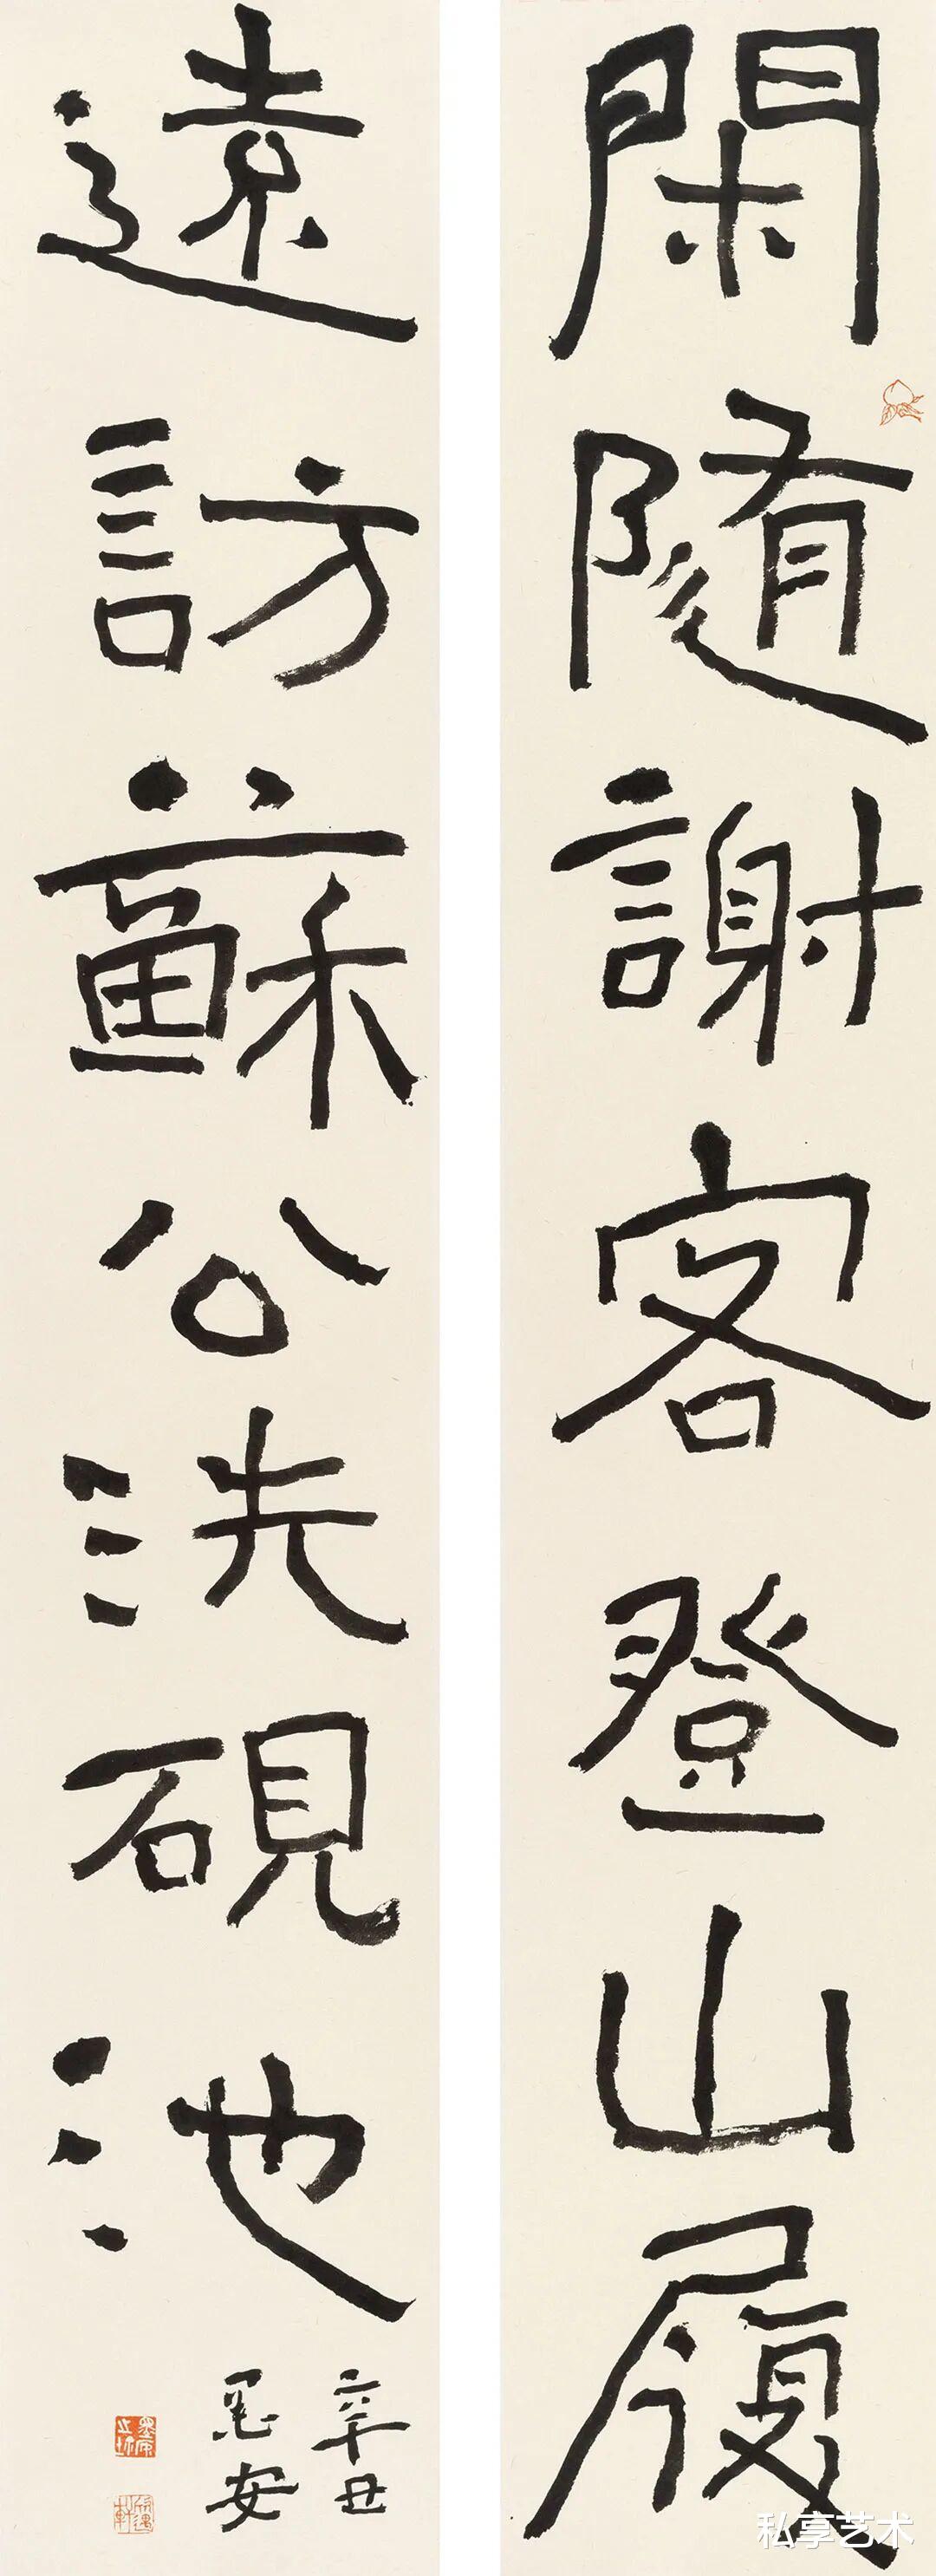 閑隨謝客登山履
遠訪蘇公洗硯池
辛丑
墨安
私享艺术